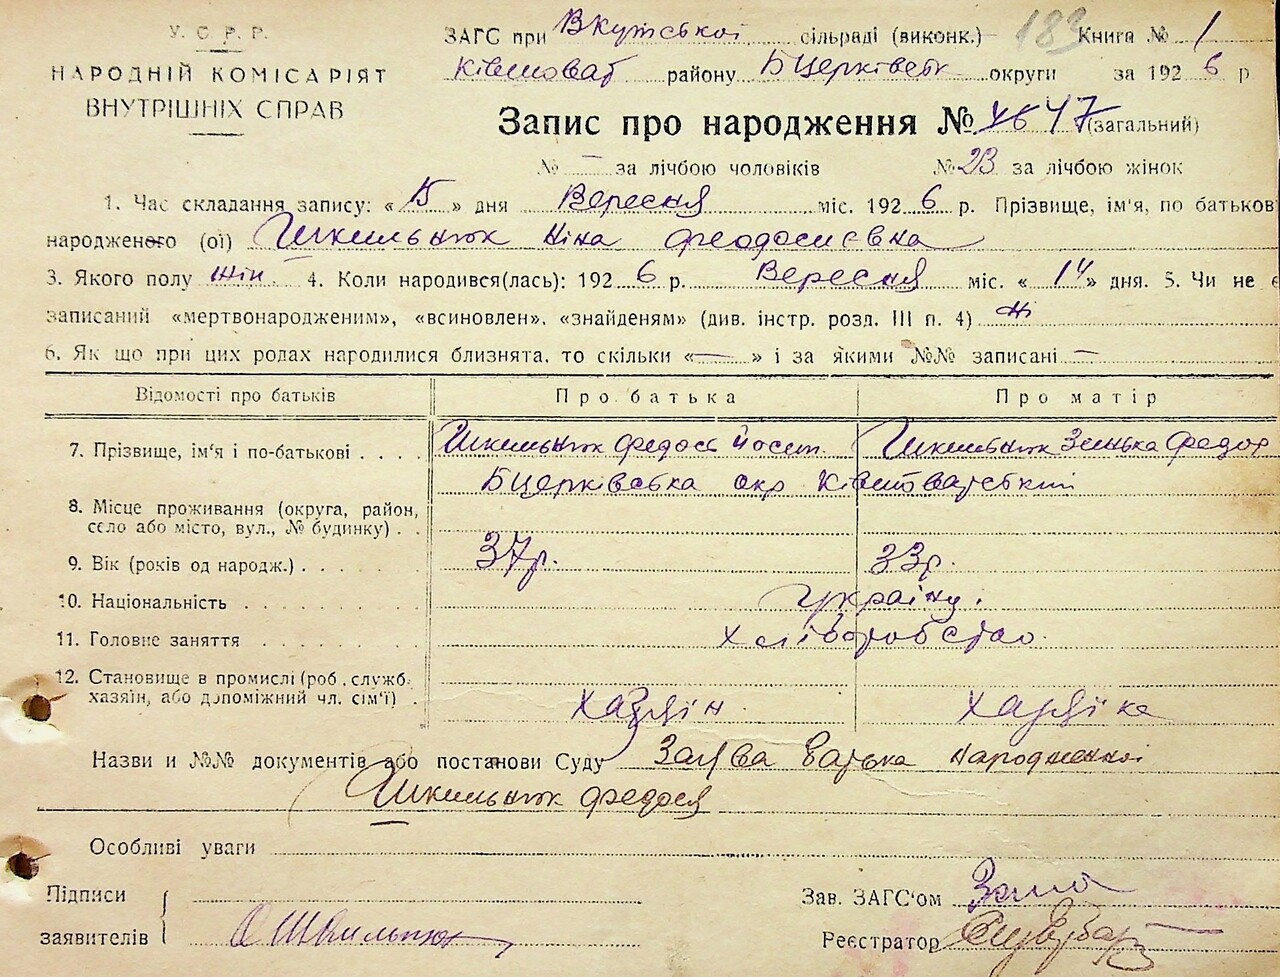 У. С. Р. Р.
НАРОДНІЙ КОМІСАРІЯТ
ВНУТРІШНІХ СПРАВ
183
ЗАГС при Вкутської сільраді (виконк.) Книга № 1
району Бцерківськ округи за 1926 р
Запис про народження № 47 (загальний)
№ — за лічбою чоловіків № 23 за лічбою жінок
1. Час складання запису: « 15 » дня Вересня міс. 1926 р. Прізвище, ім'я, по батькові
народженого (ої) Шкильнюк Ніна Феодосиєвна
3. Якого полу жін. 4. Коли народився(лась): 1926 р. Вересня міс. « 14 » дня. 5. Чи не є
записаний «мертвонародженим», «всиновлен», «знайденям» (див. інстр. розд. III п. 4) Ні
6. Як що при цих родах народилися близнята, то скільки « — » і за якими №№ записані —
Відомості про батьків Про батька Про матір
7. Прізвище, ім'я і по-батькові . . . . Шкильнюк Федось Йосип. Шкильнюк Зинька Федор
Бцерківська окр
8. Місце проживання (округа, район,
село або місто, вул., № будинку) . .
9. Вік (років од народж.) . . . . . 37р. 33р.
10. Національність . . . . . . . . Україну.
11. Головне заняття . . . . . . . Хліборобство
12. Становище в промислі (роб., службː
хазяїн, або допоміжний чл. сім'ї) . Хазяїн Хазяїка
Назви и №№ документів або постанови Суду Заява батька народженної
Шкильнюк Федося
Особливі уваги
Підписи Зав. ЗАГС'ом
заявителів Реєстратор